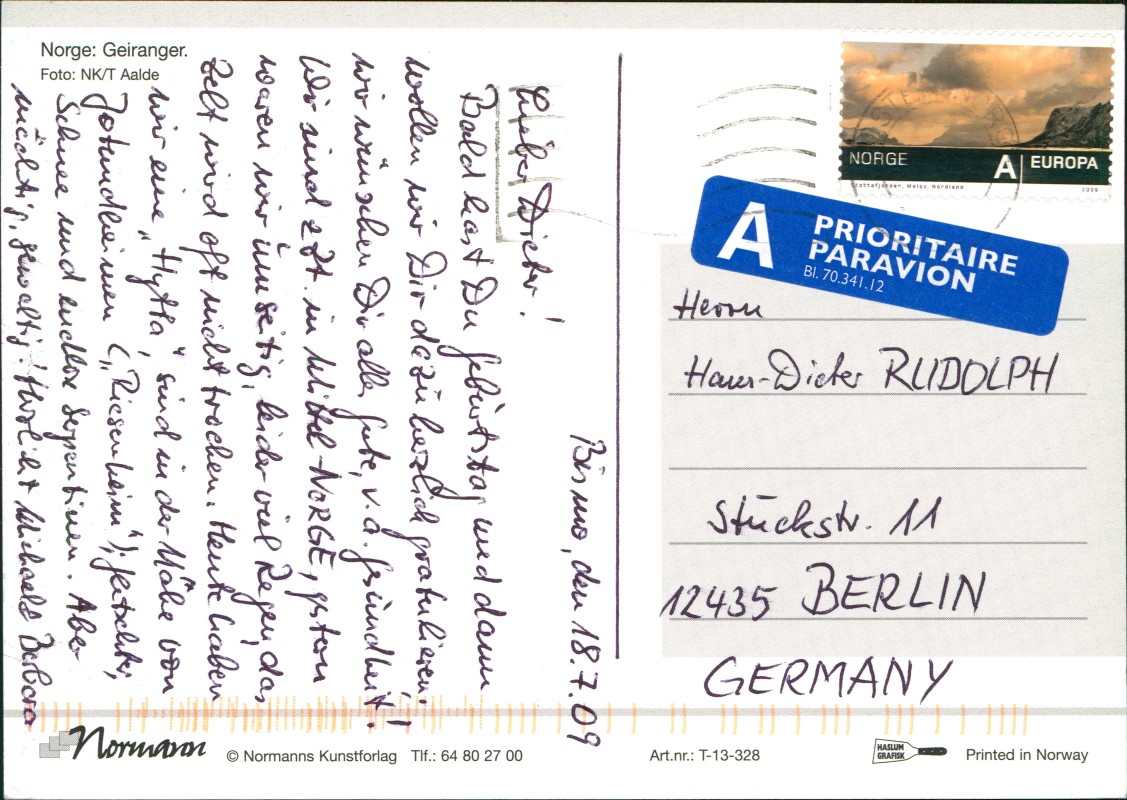 Norge: Geiranger.
Foto: NK/T Aalde
Bismo, den 18.7.09
Lieber Dieter!
Bald hast Du Geburtstag und dann
wollen wir Dir dazu herzlich gratulieren!
Wir wünschen Dir alles Gute, v.a. Gesundheit!
Wir sind z.Zt. in Mittel-NORGE, gestern
waren wir
leider viel Regen, das
Zelt wird oft nicht trocken. Heute haben
wir eine „Hytta“, sind in der Nähe von
Jotundheimen („Riesenheim“), Gletscher,
Schnee und endlose Serpentinen. Aber
mächtig, gewaltig! Herzlichst Michael & Barbara
NORGE
A EUROPA
Støttafjorden, Meløy, Nordland
2009
A PRIORITAIRE
PAR AVION
Bl. 70.341.12
Herrn
Hans-Dieter RUDOLPH
Stückstr. 11
12435 BERLIN
GERMANY
Normann
© Normanns Kunstforlag Tlf.: 64 80 27 00
Art.nr.: T-13-328
HASLUM
GRAFISK
Printed in Norway